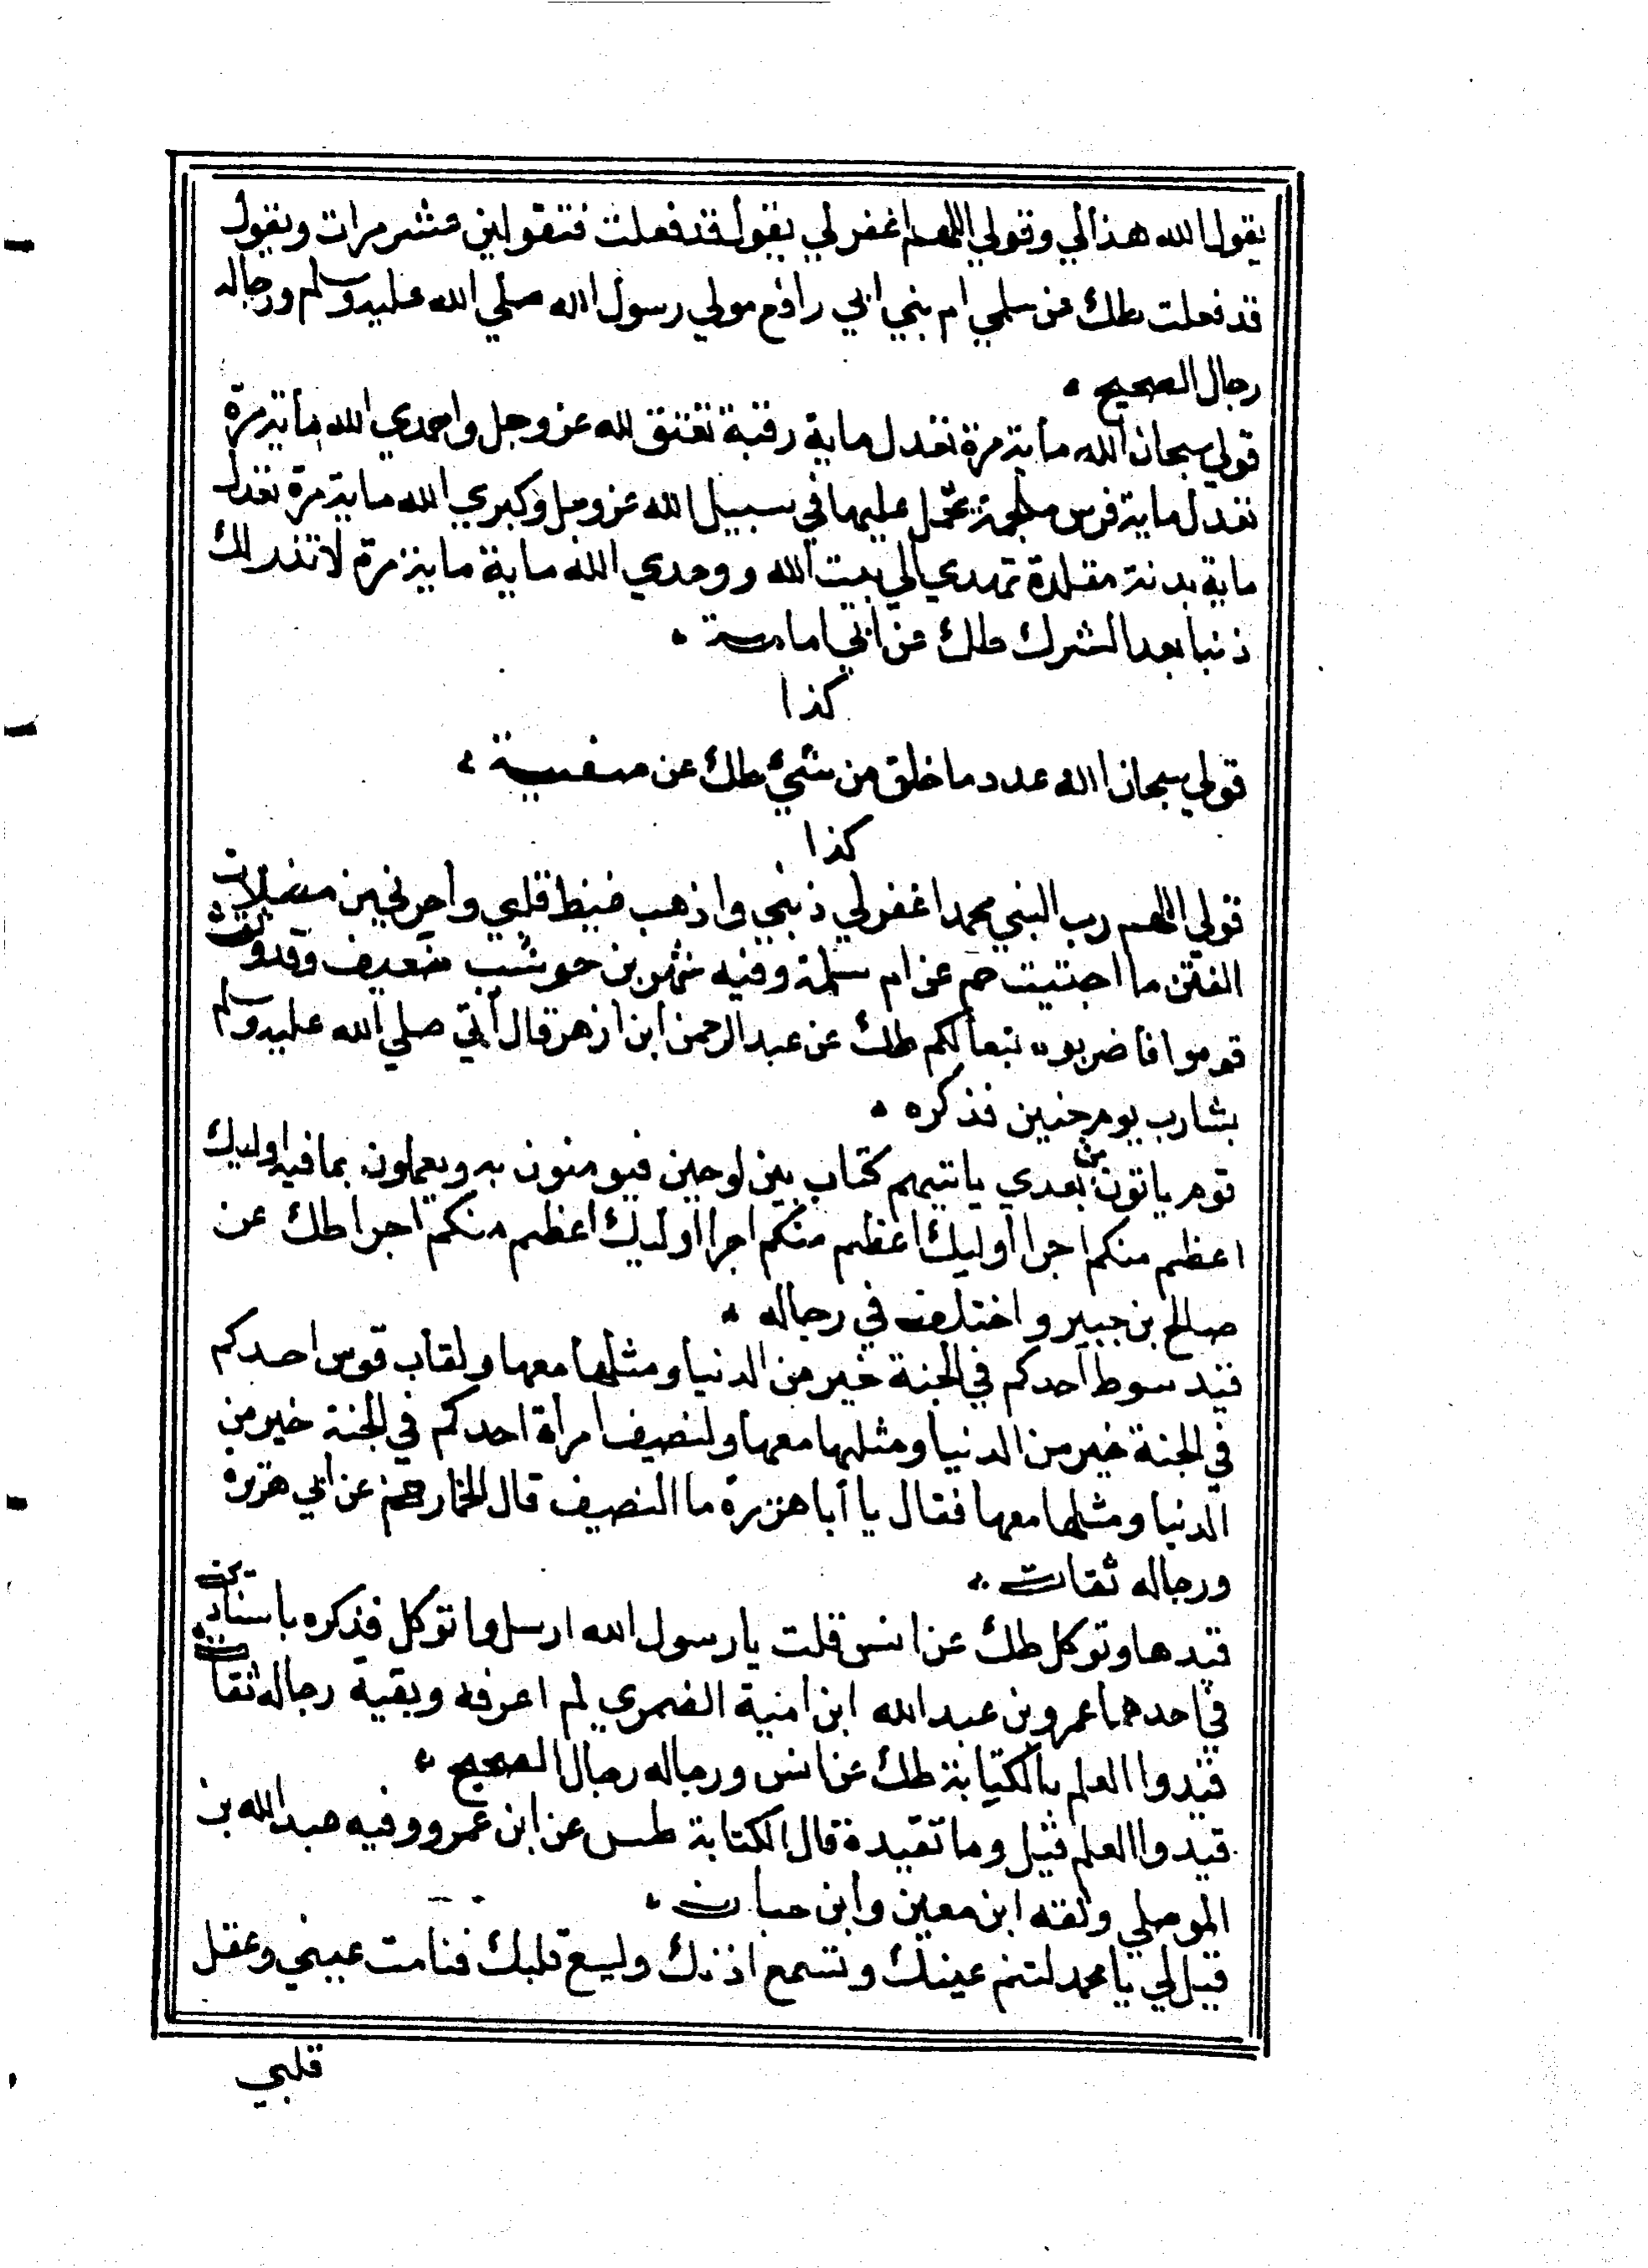 يقول الله هذا لي وقولي اللهم اغفرلي يقول قد فعلت فتقولين عشر مرات ويقول
قد فعلت طك عن سلمي ام بني ابي رافع مولي رسول الله صلي الله عليه وسلم ورجاله
رجال الصحيح
قولي سبحان الله مأية مرة تعدل ماية رقبة تعتق لله عز وجل واحمدي الله مأية مرة
تعدل ماية فرس ملجمة يحمل عليها في سبيل الله عز وجل وكبري الله ماية مرة تعدل
ماية بدنة مقلدة تهدي الي بيت الله ووحدي الله ماية ماية مرة لا تذر لك
ذنبا بعد الشرك طك عن ابي امامة
كذا
قولي سبحان الله عدد ما خلق من شيء طك عن صفية
كذا
قولي اللهم رب النبي محمد اغفرلي ذنبي واذهب غيظ قلبي واجرني من مضلات
الفتن ما احييت حم عن ام سلمة وفيه شهر بن حوشب ضعيف وقد وثق
قوموا فاضربوه نبعالكم طك عن عبد الرحمن ابن ازهر قال أتي صلي الله عليه وسلم
بشارب يوم حنين فذكره
قوم ياتون من بعدي ياتيهم كتاب بين لوحين فيومنون به ويعملون بما فيه اوليك
اعظم منكم اجرا اوليك اعظم منكم اجرا اوليك اعظم منكم اجرا طك عن
صالح بن جبير واختلف في رجاله
قيد سوط احدكم في الجنة خير من الدنيا ومثلها معها ولقاب قوس احدكم
في الجنة خير من الدنيا ومثلها معها ولنصيف امرأة احدكم في الجنة خير من
الدنيا ومثلها معها فقال يا أبا هريرة ما النصيف قال الخمار حم عن ابي هريرة
ورجاله ثقات
قيدها وتوكل طك عن انس قلت يا رسول الله ارسل واتوكل فذكره باسنادين
في احدهما عمرو بن عبد الله ابن امية الضمري لم اعرفه وبقية رجاله ثقات
قيدوا العلم بالكتابة طك عن انس ورجاله رجال الصحيح
قيدوا العلم قيل وما تقيده قال الكتابة طس عن ابن عمرو وفيه عبد الله بن
الموصلي وثقه ابن معين وابن حبان
قيل لي يا محمد لتنم عينك وتسمع اذنك وليع قلبك فنامت عيني وعقل
قلبي